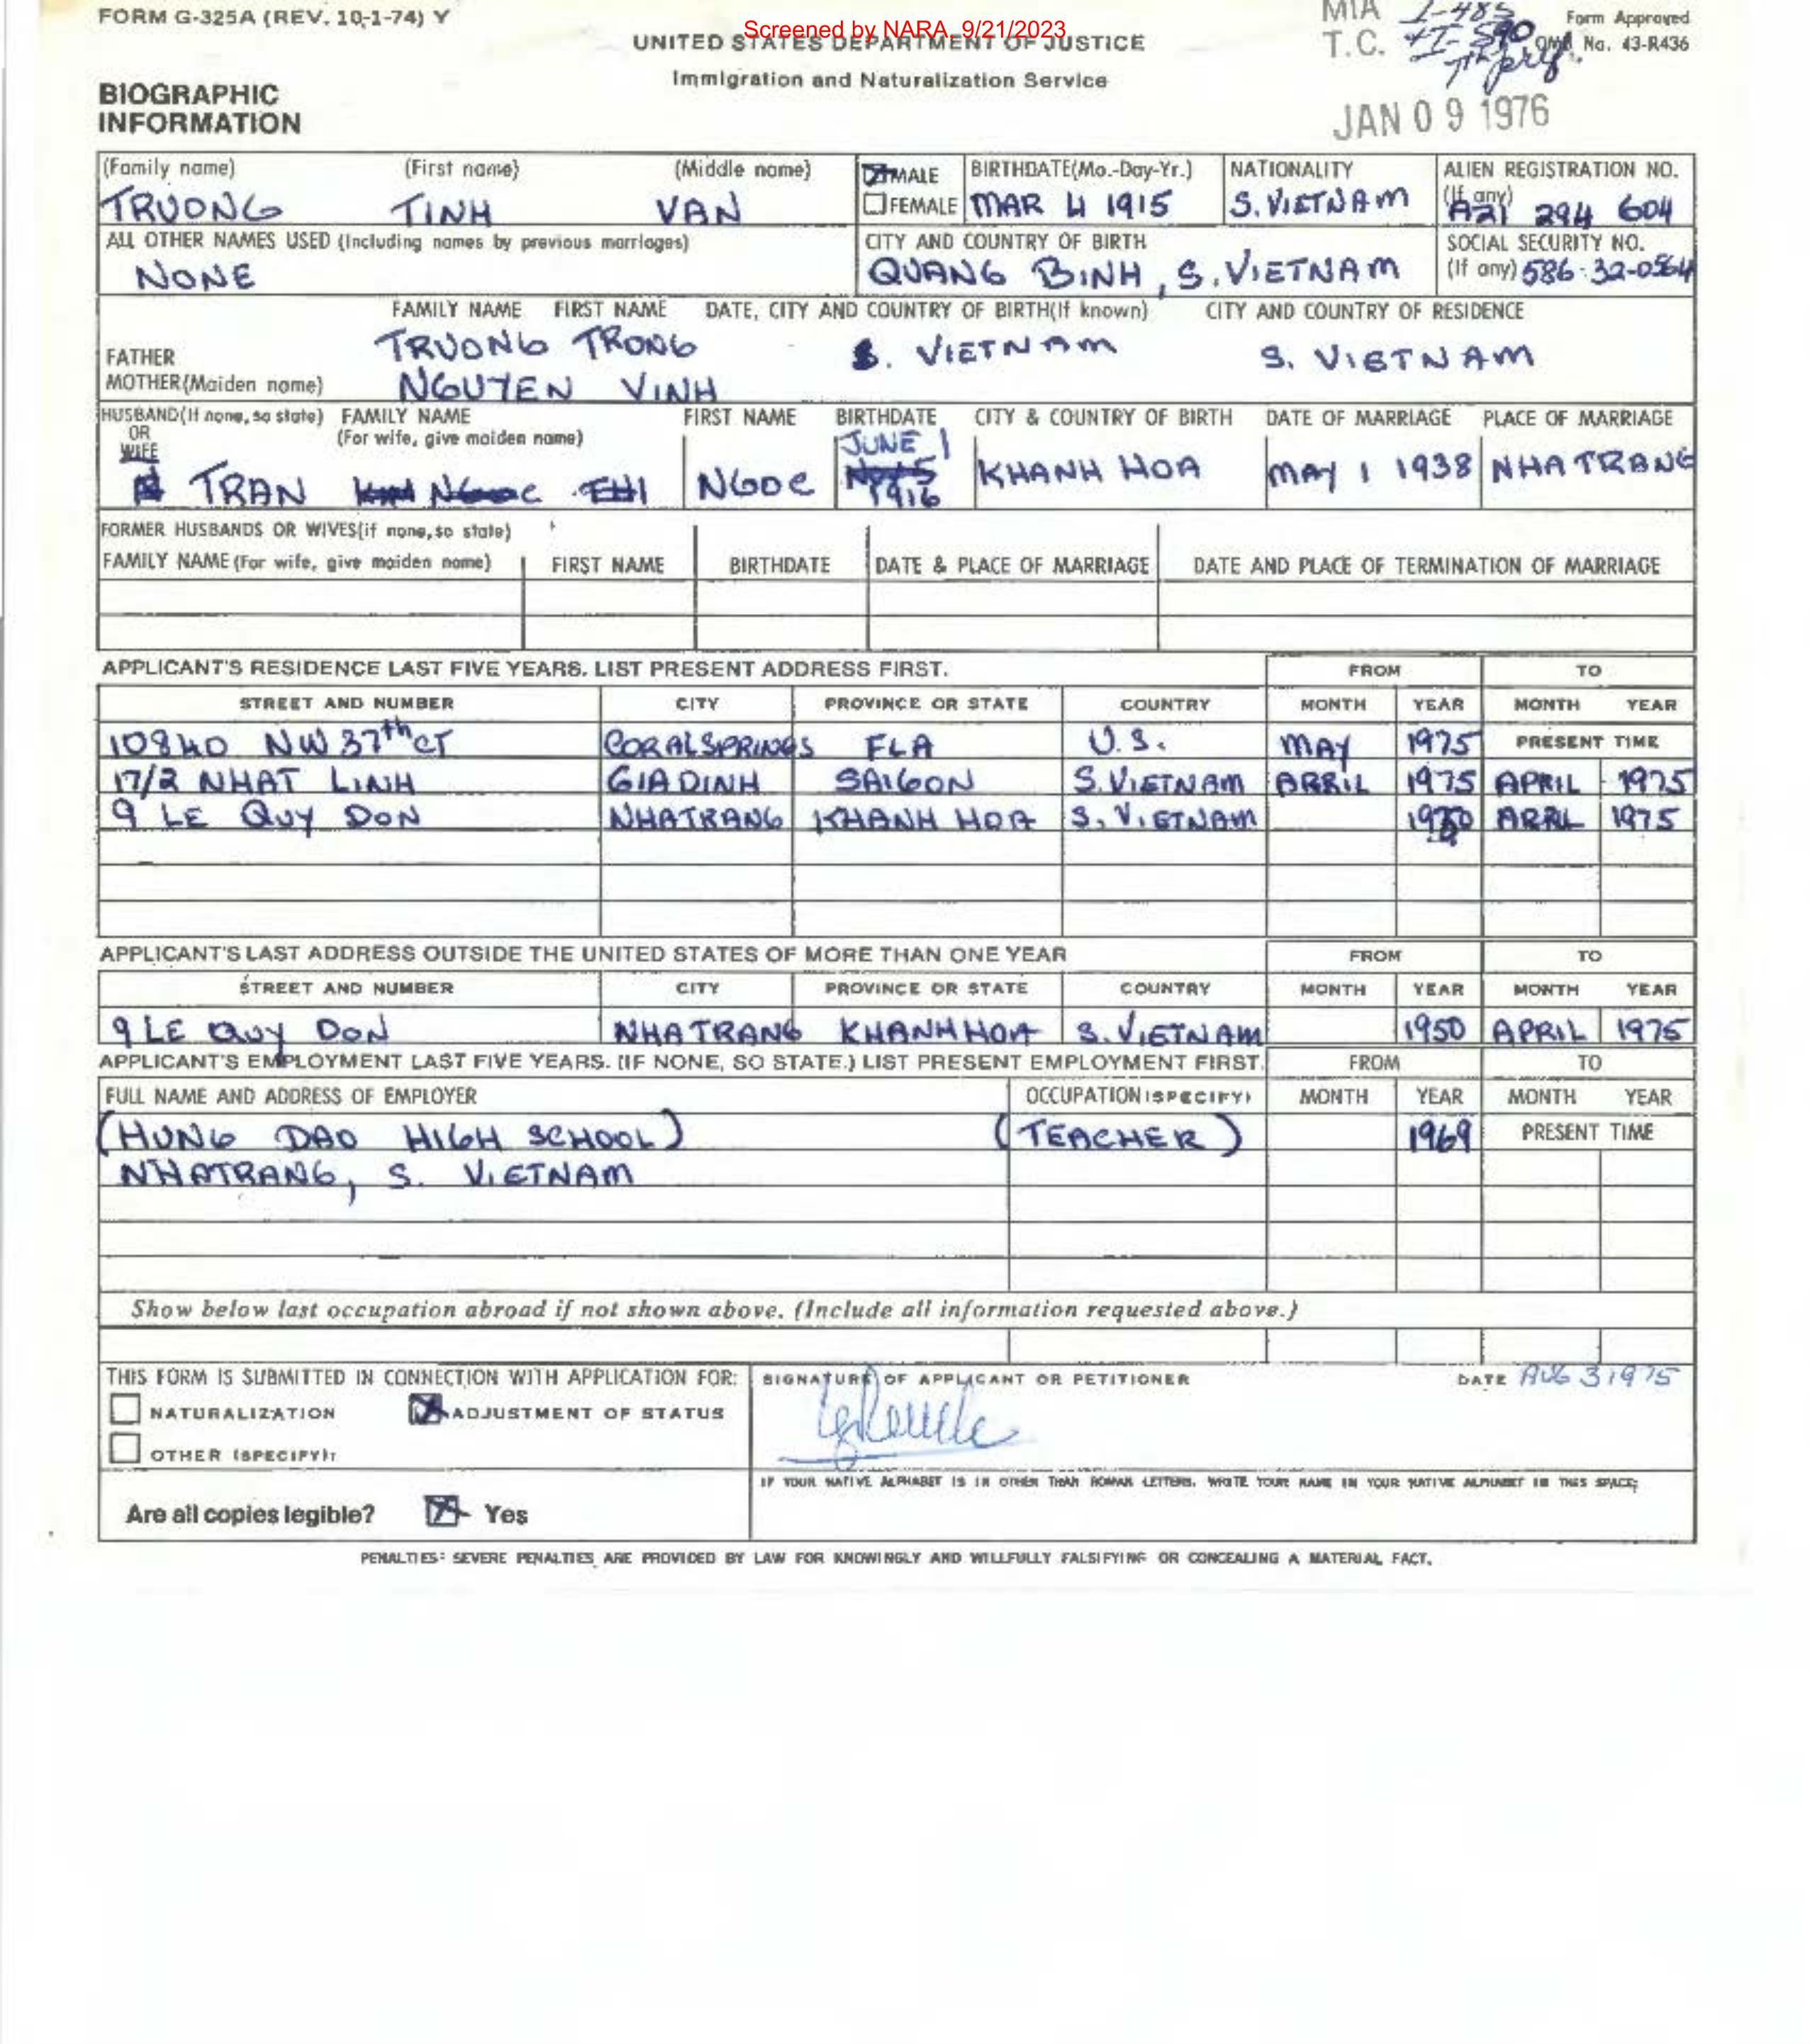 FORM G-325A (REV. 10-1-74) Y
Screened by NARA, 9/21/2023
UNITED STATES DEPARTMENT OF JUSTICE
Immigration and Naturalization Service
MIA I-485
T.C. I-590
Form Approved
OMB No. 43-R436
BIOGRAPHIC
INFORMATION
JAN 09 1976
(Family name) (First name) (Middle name) MALE BIRTHDATE(Mo.-Day-Yr.) NATIONALITY ALIEN REGISTRATION NO.
(If any)
TRUONG TINH VAN FEMALE MAR 4 1915 S. VIETNAM A21 294 604
ALL OTHER NAMES USED (Including names by previous marriages) CITY AND COUNTRY OF BIRTH SOCIAL SECURITY NO.
NONE QUANG BINH, S. VIETNAM (If any) 586-32-0564
FAMILY NAME FIRST NAME DATE, CITY AND COUNTRY OF BIRTH(If known) CITY AND COUNTRY OF RESIDENCE
FATHER TRUONG TRONG S. VIETNAM S. VIETNAM
MOTHER(Maiden name) NGUYEN VINH
HUSBAND(If none, so state) FAMILY NAME FIRST NAME BIRTHDATE CITY & COUNTRY OF BIRTH DATE OF MARRIAGE PLACE OF MARRIAGE
OR (For wife, give maiden name) JUNE 1
WIFE
TRAN NGOC THI NGOC 1916 KHANH HOA MAY 1 1938 NHATRANG
FORMER HUSBANDS OR WIVES(if none, so state)
FAMILY NAME (For wife, give maiden name) FIRST NAME BIRTHDATE DATE & PLACE OF MARRIAGE DATE AND PLACE OF TERMINATION OF MARRIAGE
APPLICANT'S RESIDENCE LAST FIVE YEARS. LIST PRESENT ADDRESS FIRST. FROM TO
STREET AND NUMBER CITY PROVINCE OR STATE COUNTRY MONTH YEAR MONTH YEAR
10840 NW 37th CT CORALSPRINGS FLA U.S. MAY 1975 PRESENT TIME
17/2 NHAT LINH GIADINH SAIGON S. VIETNAM ARRIL 1975 APRIL 1975
9 LE QUY DON NHATRANG KHANH HOA S. VIETNAM 1950 ARRL 1975
APPLICANT'S LAST ADDRESS OUTSIDE THE UNITED STATES OF MORE THAN ONE YEAR FROM TO
STREET AND NUMBER CITY PROVINCE OR STATE COUNTRY MONTH YEAR MONTH YEAR
9 LE QUY DON NHATRANG KHANH HOA S. VIETNAM 1950 APRIL 1975
APPLICANT'S EMPLOYMENT LAST FIVE YEARS. (IF NONE, SO STATE.) LIST PRESENT EMPLOYMENT FIRST. FROM TO
FULL NAME AND ADDRESS OF EMPLOYER OCCUPATION (SPECIFY) MONTH YEAR MONTH YEAR
(HUNG DAO HIGH SCHOOL) (TEACHER) 1969 PRESENT TIME
NHATRANG, S. VIETNAM
Show below last occupation abroad if not shown above. (Include all information requested above.)
THIS FORM IS SUBMITTED IN CONNECTION WITH APPLICATION FOR: SIGNATURE OF APPLICANT OR PETITIONER DATE AUG 3 1975
NATURALIZATION ADJUSTMENT OF STATUS
OTHER (SPECIFY):
IF YOUR NATIVE ALPHABET IS IN OTHER THAN ROMAN LETTERS, WRITE YOUR NAME IN YOUR NATIVE ALPHABET IN THIS SPACE:
Are all copies legible? Yes
PENALTIES: SEVERE PENALTIES ARE PROVIDED BY LAW FOR KNOWINGLY AND WILLFULLY FALSIFYING OR CONCEALING A MATERIAL FACT.